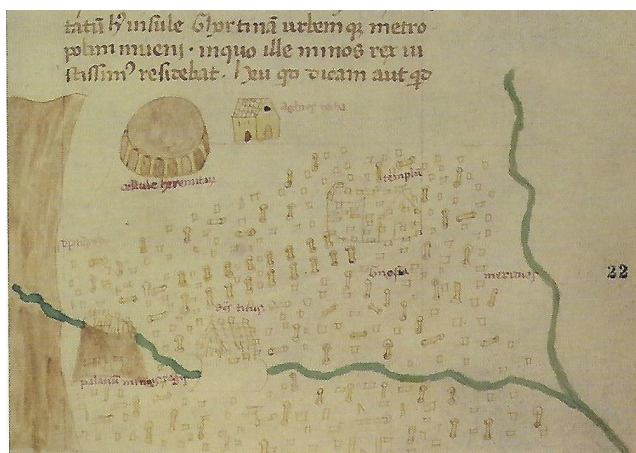 tatū hꝰ insule Ghortinā urbem qꝫ metro
polim inueni · in quo ille minos rex iu
stissimꝰ residebat · heu qd dicam aut qd
cellule heremitaꝝ
templū
meridies
22
Scs titus
palatiū minois regis